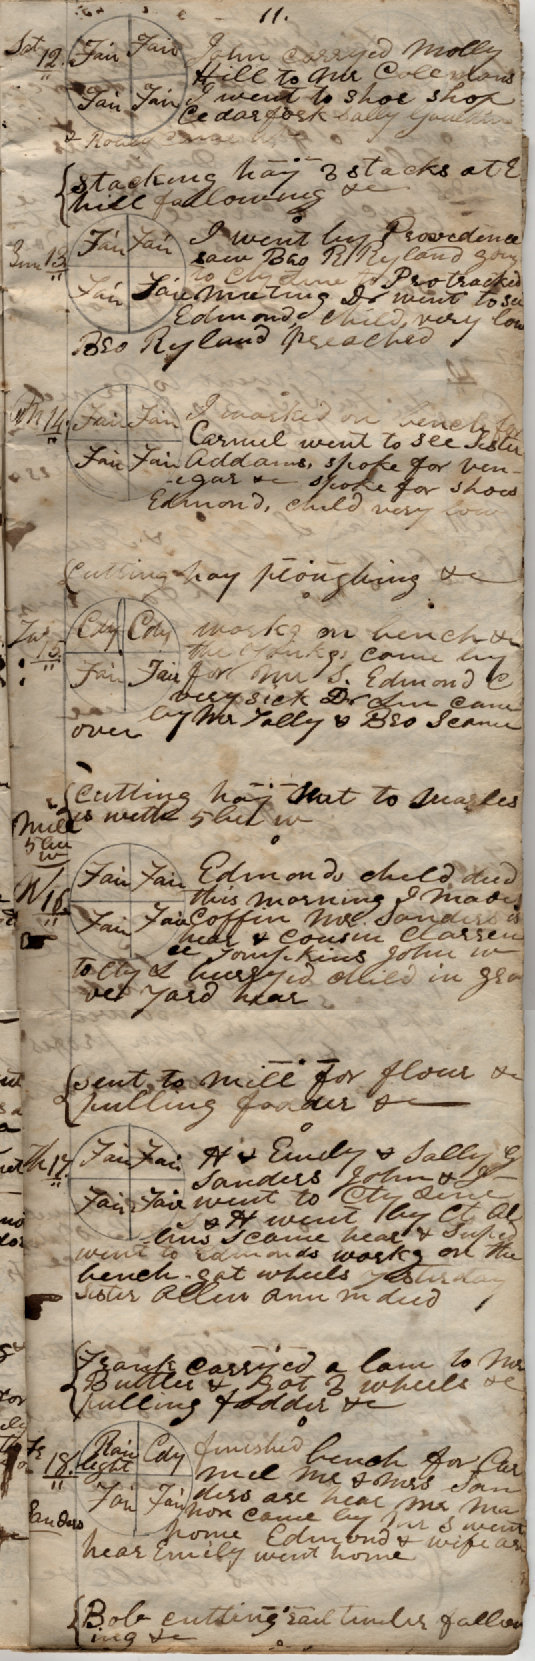 11.
Sat 12. Fair Fair John carryed Molly
Hill to Mr Colemans
Fair Fair I went to shoe shop
Cedarfork Sally
&
{stacking hay 3 stacks at E
hill fallowing &c
Sun 13 Fair Fair I went by Providence
saw Bro R Ryland going
to Cly Line to Protracked
Fair Fair meeting Dr went to see
Edmonds child, very low
Bro Ryland preached
Mn 14. Fair Fair I worked on bench for
Carmel went to see Sister
Fair Fair Addams, spoke for ven-
egar &c spoke for shoes
Edmond, child very low
{Cutting hay ploughing &c
Tu 15. Cdy Cdy workg on bench &c
the came by
Fair Fair for Mr S. Edmond C
very sick Dr came
by Mr Tally & Bro S came
over
{Cutting hay sent to Maples
is with 5 bu w
Mill
5 bu
w
W 16 Fair Fair Edmonds child died
this morning I made
Fair Fair Coffin Mr Sanders is
hear & cousin Classen
Tompkins John w
to Cly L burryed child in gra
ve yard hear
{sent to mill for flour &c
pulling fodder &c
Th 17. Fair Fair H & Emily & Sally G
Sanders John & J
Fair Fair went to Cty Line
S & H went by Ct
S came hear & Super
went to Edmonds workg on the
bench - got wheels yesterday
Sister Allen Ann M died
{Frank carryed a lam to Mr
Butler & got 3 wheels &c
pulling fodder &c
Fr 18. Rain light Cdy finished bench for Car
mel Mr & Mrs San
Fair Fair ders are hear Mr Ma
hon came by Mr S went
home Edmond & wife are
hear Emily went home
Sanders
{Bob cutting rail timber fallow
ing &c